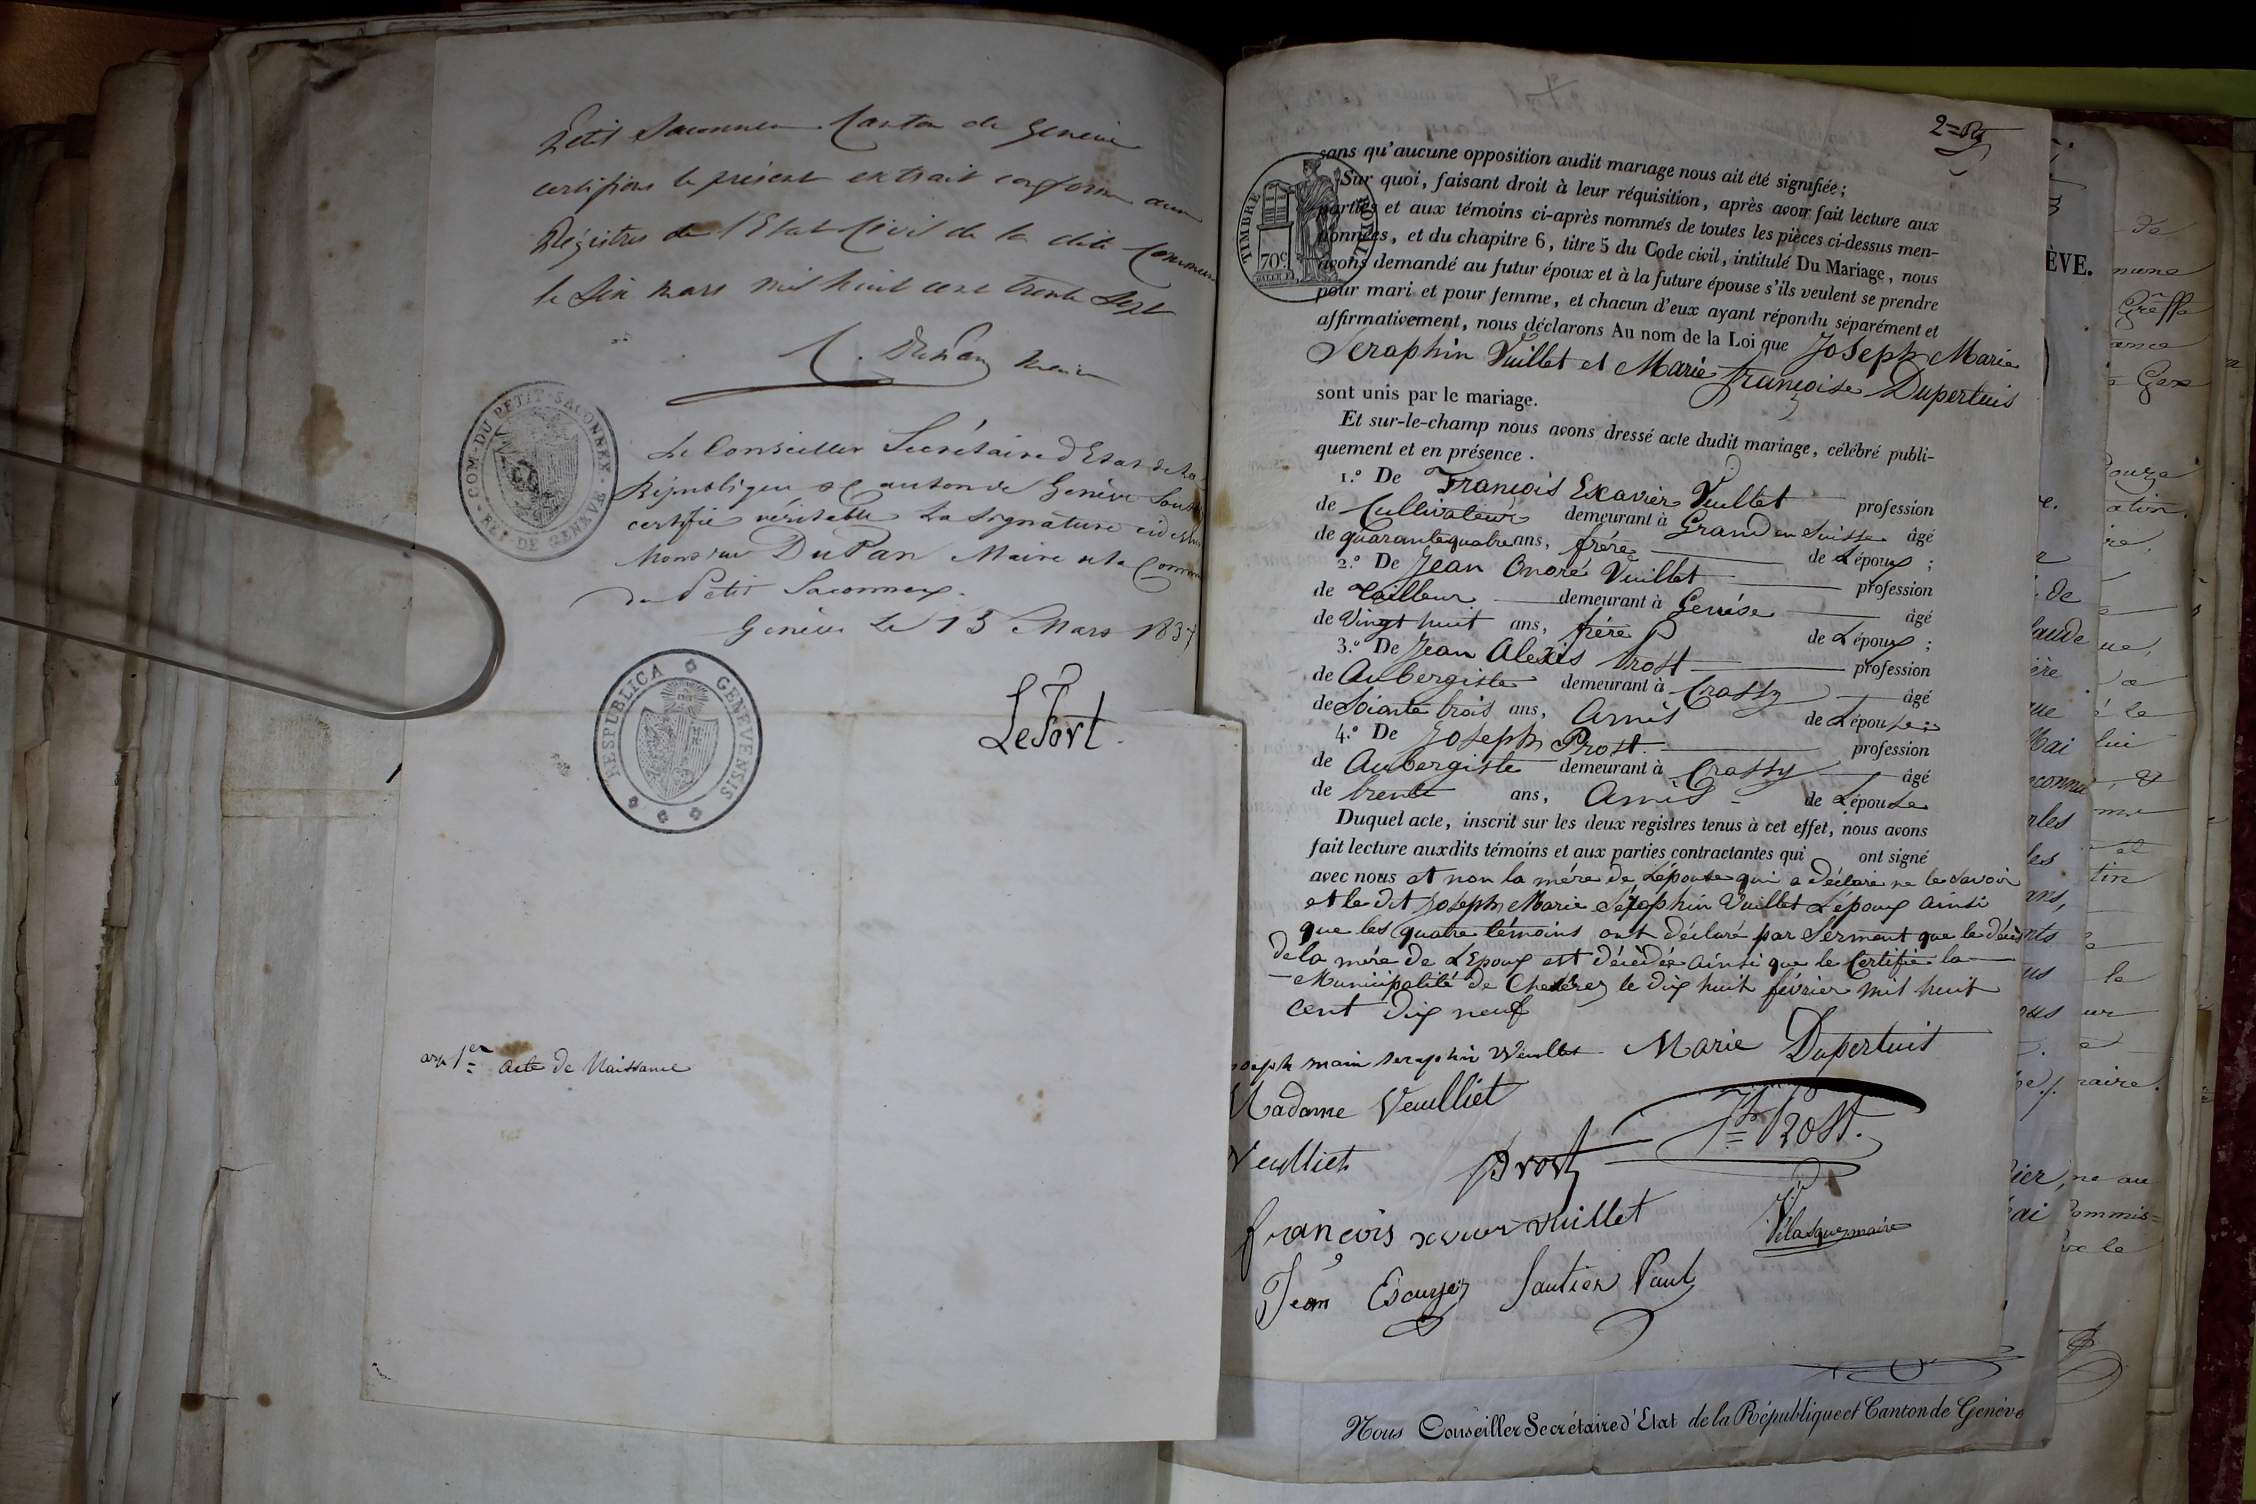 Petit Saconnex Canton de Genève
certifions le présent extrait conforme aux
Régistres de l'Etat Civil de la dite Commune
le Six mars mil huit cent trente Sept
DuPan Maire
COM. DU PETIT-SACONNEX - REP. DE GENEVE
Le Conseiller Secrétaire d'Etat de la
République et canton de Genève Sous
certifie véritable la signature ci dessus
Monsieur DuPan Maire de la Commune
du Petit Saconnex.
Genève Le 13 Mars 1837
RESPUBLICA GENEVENSIS
LeFort
1er acte de Naissance
2me
TIMBRE ROYAL
70c
sans qu'aucune opposition audit mariage nous ait été signifiée;
Sur quoi, faisant droit à leur réquisition, après avoir fait lecture aux
parties et aux témoins ci-après nommés de toutes les pièces ci-dessus men-
tionnées, et du chapitre 6, titre 5 du Code civil, intitulé Du Mariage, nous
avons demandé au futur époux et à la future épouse s'ils veulent se prendre
pour mari et pour femme, et chacun d'eux ayant répondu séparément et
affirmativement, nous déclarons Au nom de la Loi que Joseph Marie
Seraphin Vuillet et Marie françoise Dupertuis
sont unis par le mariage.
Et sur-le-champ nous avons dressé acte dudit mariage, célébré publi-
quement et en présence.
1.° De François Exavier Vuillet profession
de Cultivateur demeurant à Grand en Suisse âgé
de quarante quatre ans, frére de L'époux ;
2.° De Jean Onoré Vuillet profession
de tailleur demeurant à Genése âgé
de Vingt huit ans, frére de L'époux ;
3.° De Jean Alexis Prost profession
de Aubergiste demeurant à Crassy âgé
de Soiante trois ans, Amis de L'épouse ;
4.° De Joseph Prost profession
de Aubergiste demeurant à Crassy âgé
de trente ans, Amis de L'épouse
Duquel acte, inscrit sur les deux registres tenus à cet effet, nous avons
fait lecture auxdits témoins et aux parties contractantes qui ont signé
avec nous et non la mére de L'épouse qui a déclaré ne le savoir
et le dit Joseph Marie Séraphin Vuillet L'époux ainsi
que les quatre témoins ont déclaré par Serment que le décès
de la mére de L'Epoux est décédée ainsi que le Certifie la
Municipalité de Cheserex le dix huit février mil huit
cent dix neuf
joseph marie seraphin Veuillet Marie Dupertuit
Madame Veuilliet
Jh Prost.
Veuilliet Prost
françois xvier vuillet
Vélasquez maire
Jean Escuyer Sautier Paul
Nous Conseiller Secrétaire d'Etat de la République et Canton de Genève
ÈVE.